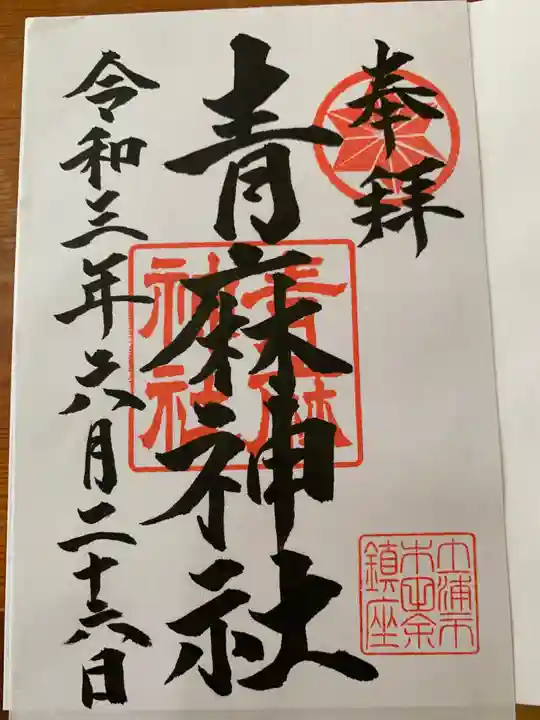 奉拝
青麻神社
令和三年六月二十六日
青麻
神社
土浦市
木田余
鎮座